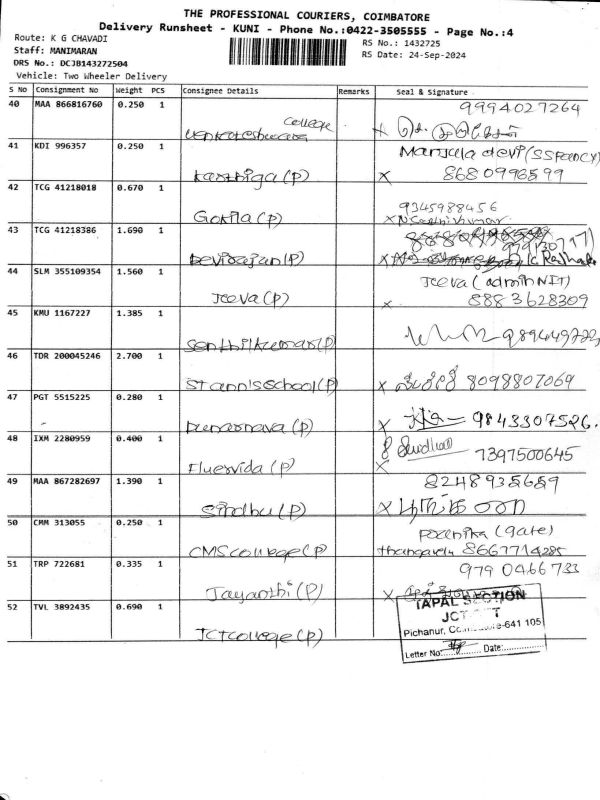 THE PROFESSIONAL COURIERS, COIMBATORE
Delivery Runsheet - KUNI - Phone No.:0422-3505555 - Page No.:4
Route: K G CHAVADI
RS No.: 1432725
Staff: MANIMARAN
RS Date: 24-Sep-2024
DRS No.: DCJB143272504
Vehicle: Two Wheeler Delivery
S No Consignment No Weight PCS Consignee Details Remarks Seal & Signature
40 MAA 866816760 0.250 1 9994027264
college
41 KDI 996357 0.250 1 Manjula devi (SSPancy)
Karthiga (P) 8680996599
42 TCG 41218018 0.670 1 9345988456
Gokila (P)
43 TCG 41218386 1.690 1
Devirajan (P)
44 SLM 355109354 1.560 1 Jeeva (admin NIT)
Jeeva (P) 8883628309
45 KMU 1167227 1.385 1
Senthilkumar (P)
46 TDR 200045246 2.700 1
St ann's School (P) 8098807069
47 PGT 5515225 0.280 1
(P) 9843307526.
48 IXM 2280959 0.400 1
Fluervida (P) 7397500645
49 MAA 867282697 1.390 1 8248935659
Sindhu (P)
50 CMM 313055 0.250 1 (gate)
CMS college (P) thangavelu 8667714285
51 TRP 722681 0.335 1 9790466733
Jayanthi (P)
52 TVL 3892435 0.690 1
JCT college (P)
TAPAL SECTION
JCT
Pichanur, -641 105
Letter No: Date: